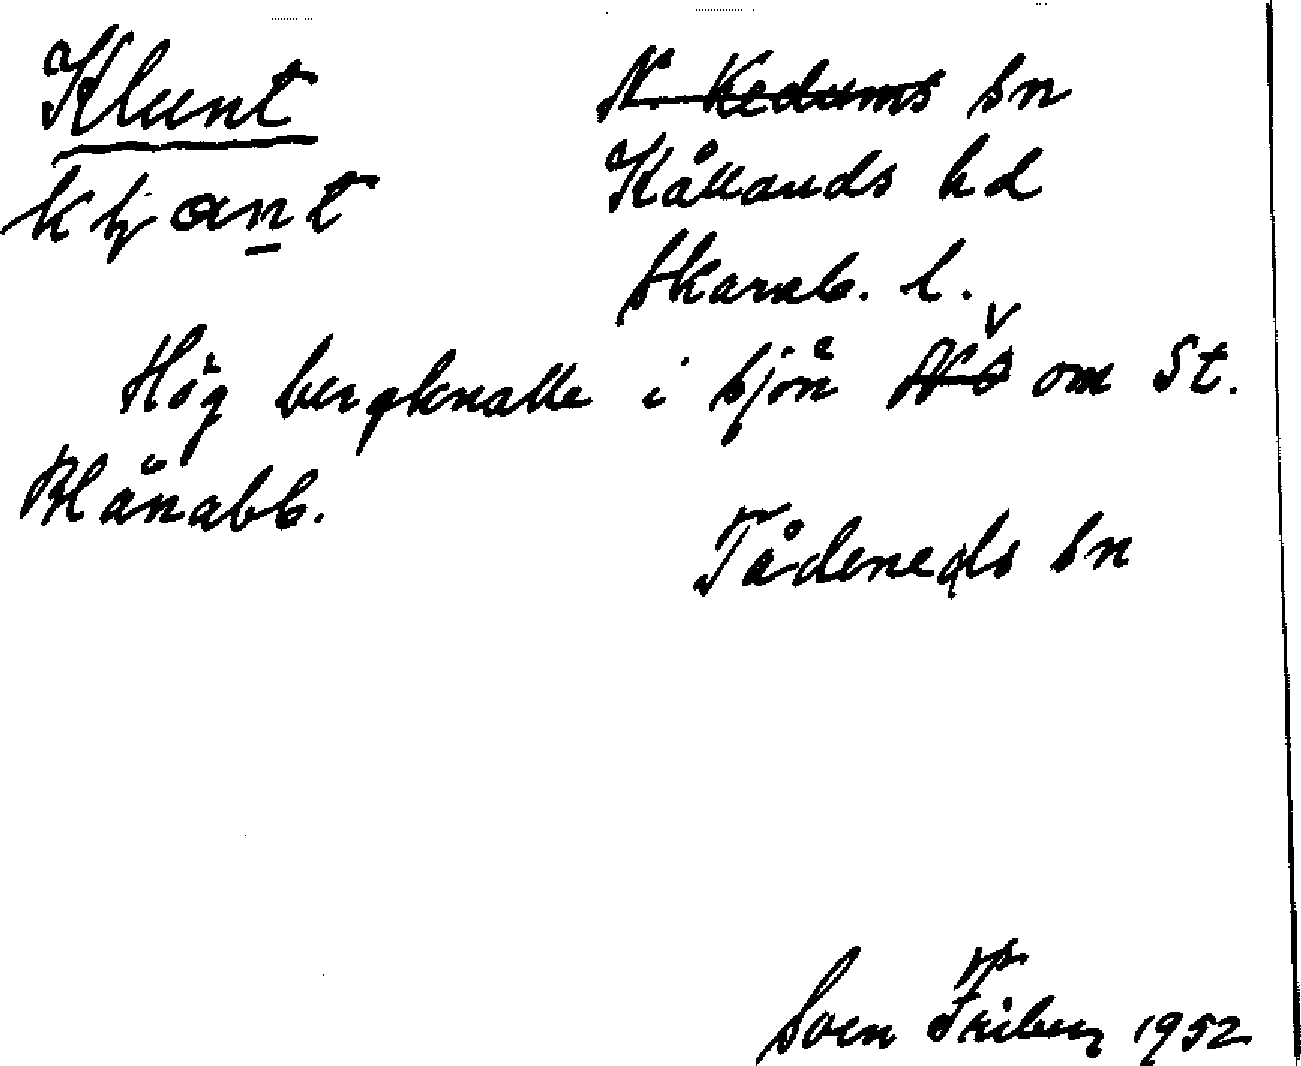 Klunt
N. Kedums sn
Kållands hd
Skarab. l.
Hög bergknalle i sjön NÖ v om St.
Blånabb.
Tådeneds sn
Sven Friberg 1952